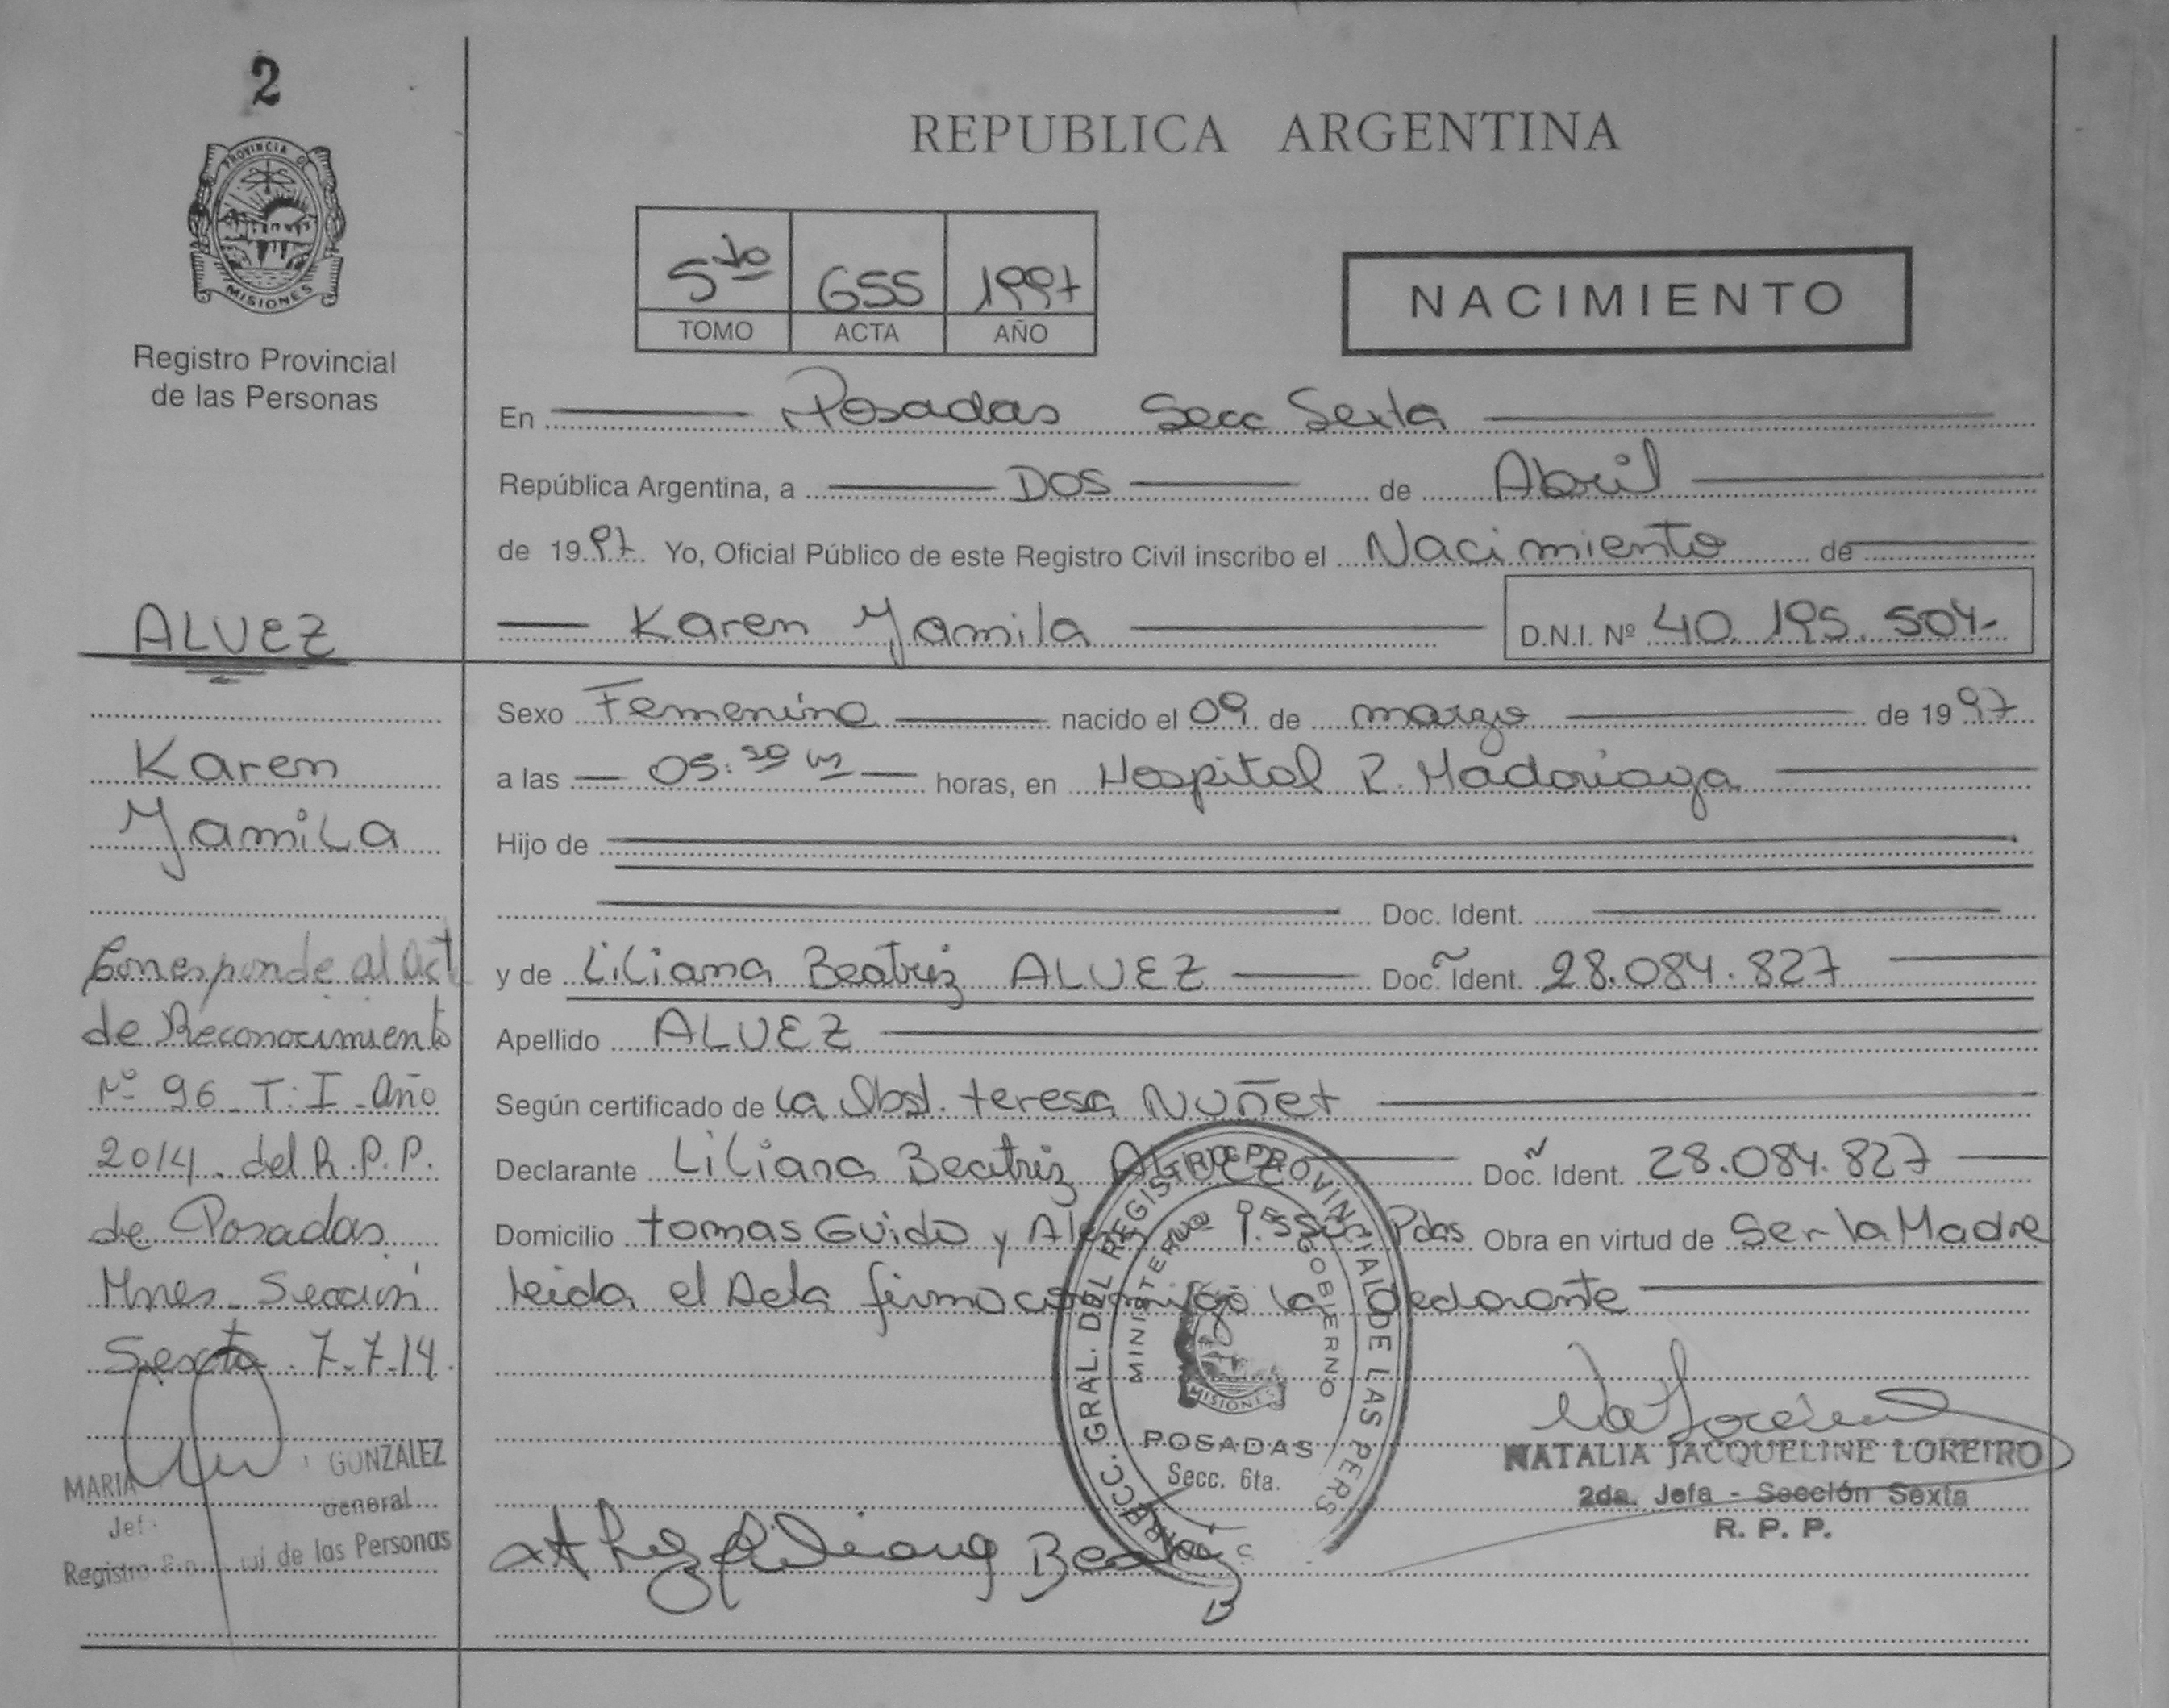 2
PROVINCIA D
MISIONES
Registro Provincial
de las Personas
REPUBLICA ARGENTINA
5to 655 1997
TOMO ACTA AÑO
NACIMIENTO
En Posadas Secc Sexta
República Argentina, a DOS de Abril
de 1997 Yo, Oficial Público de este Registro Civil inscribo el Nacimiento de
Karen Yamila D.N.I. Nº 40.195.504-
Sexo Femenino nacido el 09 de marzo de 1997
a las 05: horas, en Hospital R. Madariaga
Hijo de
Doc. Ident.
y de Liliana Beatriz ALVEZ Doc. Ident. 28.084.827
Apellido ALVEZ
Según certificado de la Obst. teresa Nuñez
Declarante Liliana Beatriz ALVEZ Doc. Ident. 28.084.827
Domicilio tomas Guido y Pdas Obra en virtud de Ser la Madre
leida el Acta firma conmigo la declarante
ALVEZ
Karen
Yamila
Corresponde al Act
de Reconocimiento
Nº 96 T. I - Año
2014. del R.P.P.
de Posadas
Mnes - Sección
Sexta 7-7-14.
MARIA GONZALEZ
Jef General
Registro de las Personas
SECC. GRAL. DEL REGISTRO PROVINCIAL DE LAS PERS
MINISTERIO GOBIERNO
MISIONES
POSADAS
Secc. 6ta.
Liliana Beatriz
NATALIA JACQUELINE LOREIRO
2da. Jefa - Sección Sexta
R. P. P.